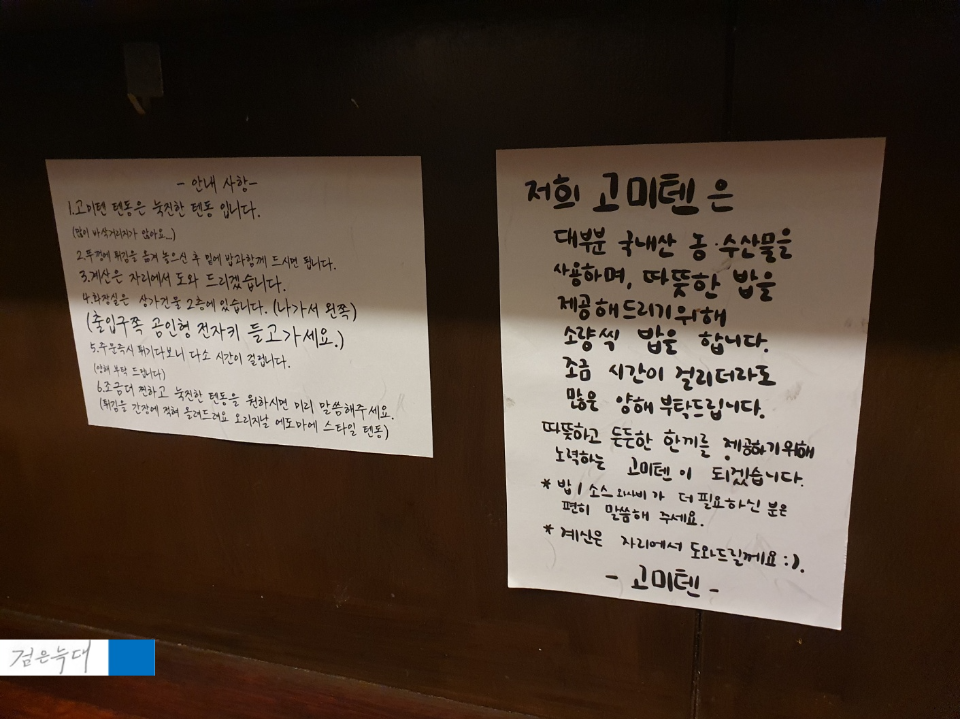 - 안내 사항-
1.고미텐 텐동은 눅진한 텐동 입니다.
(많이 바삭거리지가 않아요...)
2.뚜껑에 튀김을 옮겨 놓으신 후 밑에 밥과함께 드시면 됩니다.
3.계산은 자리에서 도와 드리겠습니다.
4.화장실은 상가건물 2층에 있습니다. (나가서 왼쪽)
(출입구쪽 곰인형 전자키 들고가세요.)
5.주문즉시 튀기다보니 다소 시간이 걸립니다.
(양해 부탁 드립니다)
6.조금더 찐하고 눅진한 텐동을 원하시면 미리 말씀해주세요.
(튀김을 간장에 적혀 올려드려요 오리지널 에도마에 스타일 텐동)
저희 고미텐은
대부분 국내산 농·수산물을
사용하며, 따뜻한 밥을
제공해드리기위해
소량씩 밥을 합니다.
조금 시간이 걸리더라도
많은 양해 부탁드립니다.
따뜻하고 든든한 한끼를 제공하기위해
노력하는 고미텐이 되겠습니다.
* 밥 / 소스 와사비가 더 필요하신 분은
편히 말씀해 주세요.
* 계산은 자리에서 도와드릴께요 :).
- 고미텐 -
검은늑대